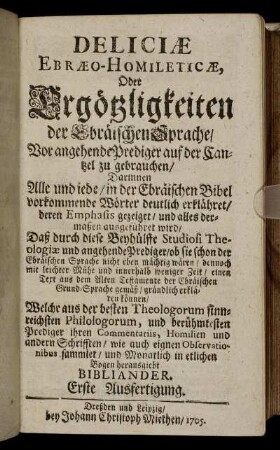 DELICIÆ
EBRÆO-HOMILETICÆ,
Oder
Ergötzligkeiten
der Ebräischen Sprache/
Vor angehende Prediger auf der Can-
tzel zu gebrauchen/
Darinnen
Alle und jede/in der Ebräischen Bibel
vorkommende Wörter deutlich erkläret/
deren Emphasis gezeiget/und alles der-
maßen ausgeführet wird/
Daß durch diese Beyhülffe Studiosi The-
ologiæ und angehende Prediger/ob sie schon der
Ebräischen Sprache nicht eben mächtig wären/dennoch
mit leichter Mühe und innerhalb weniger Zeit/einen
Text aus dem Alten Testamente der Ebräischen
Grund-Sprache gemäß/gründlich erklä-
ren können/
Welche aus der besten Theologorum sinn-
reichsten Philologorum, und berühmtesten
Prediger ihren Commentariis, Homilien und
andern Schrifften/wie auch eignen Observatio-
nibus sammlet/und Monatlich in etlichen
Bogen herausgiebt
BIBLIANDER.
Erste Ausfertigung.
Dreßden und Leipzig/
bey Johann Christoph Miethen/1705.